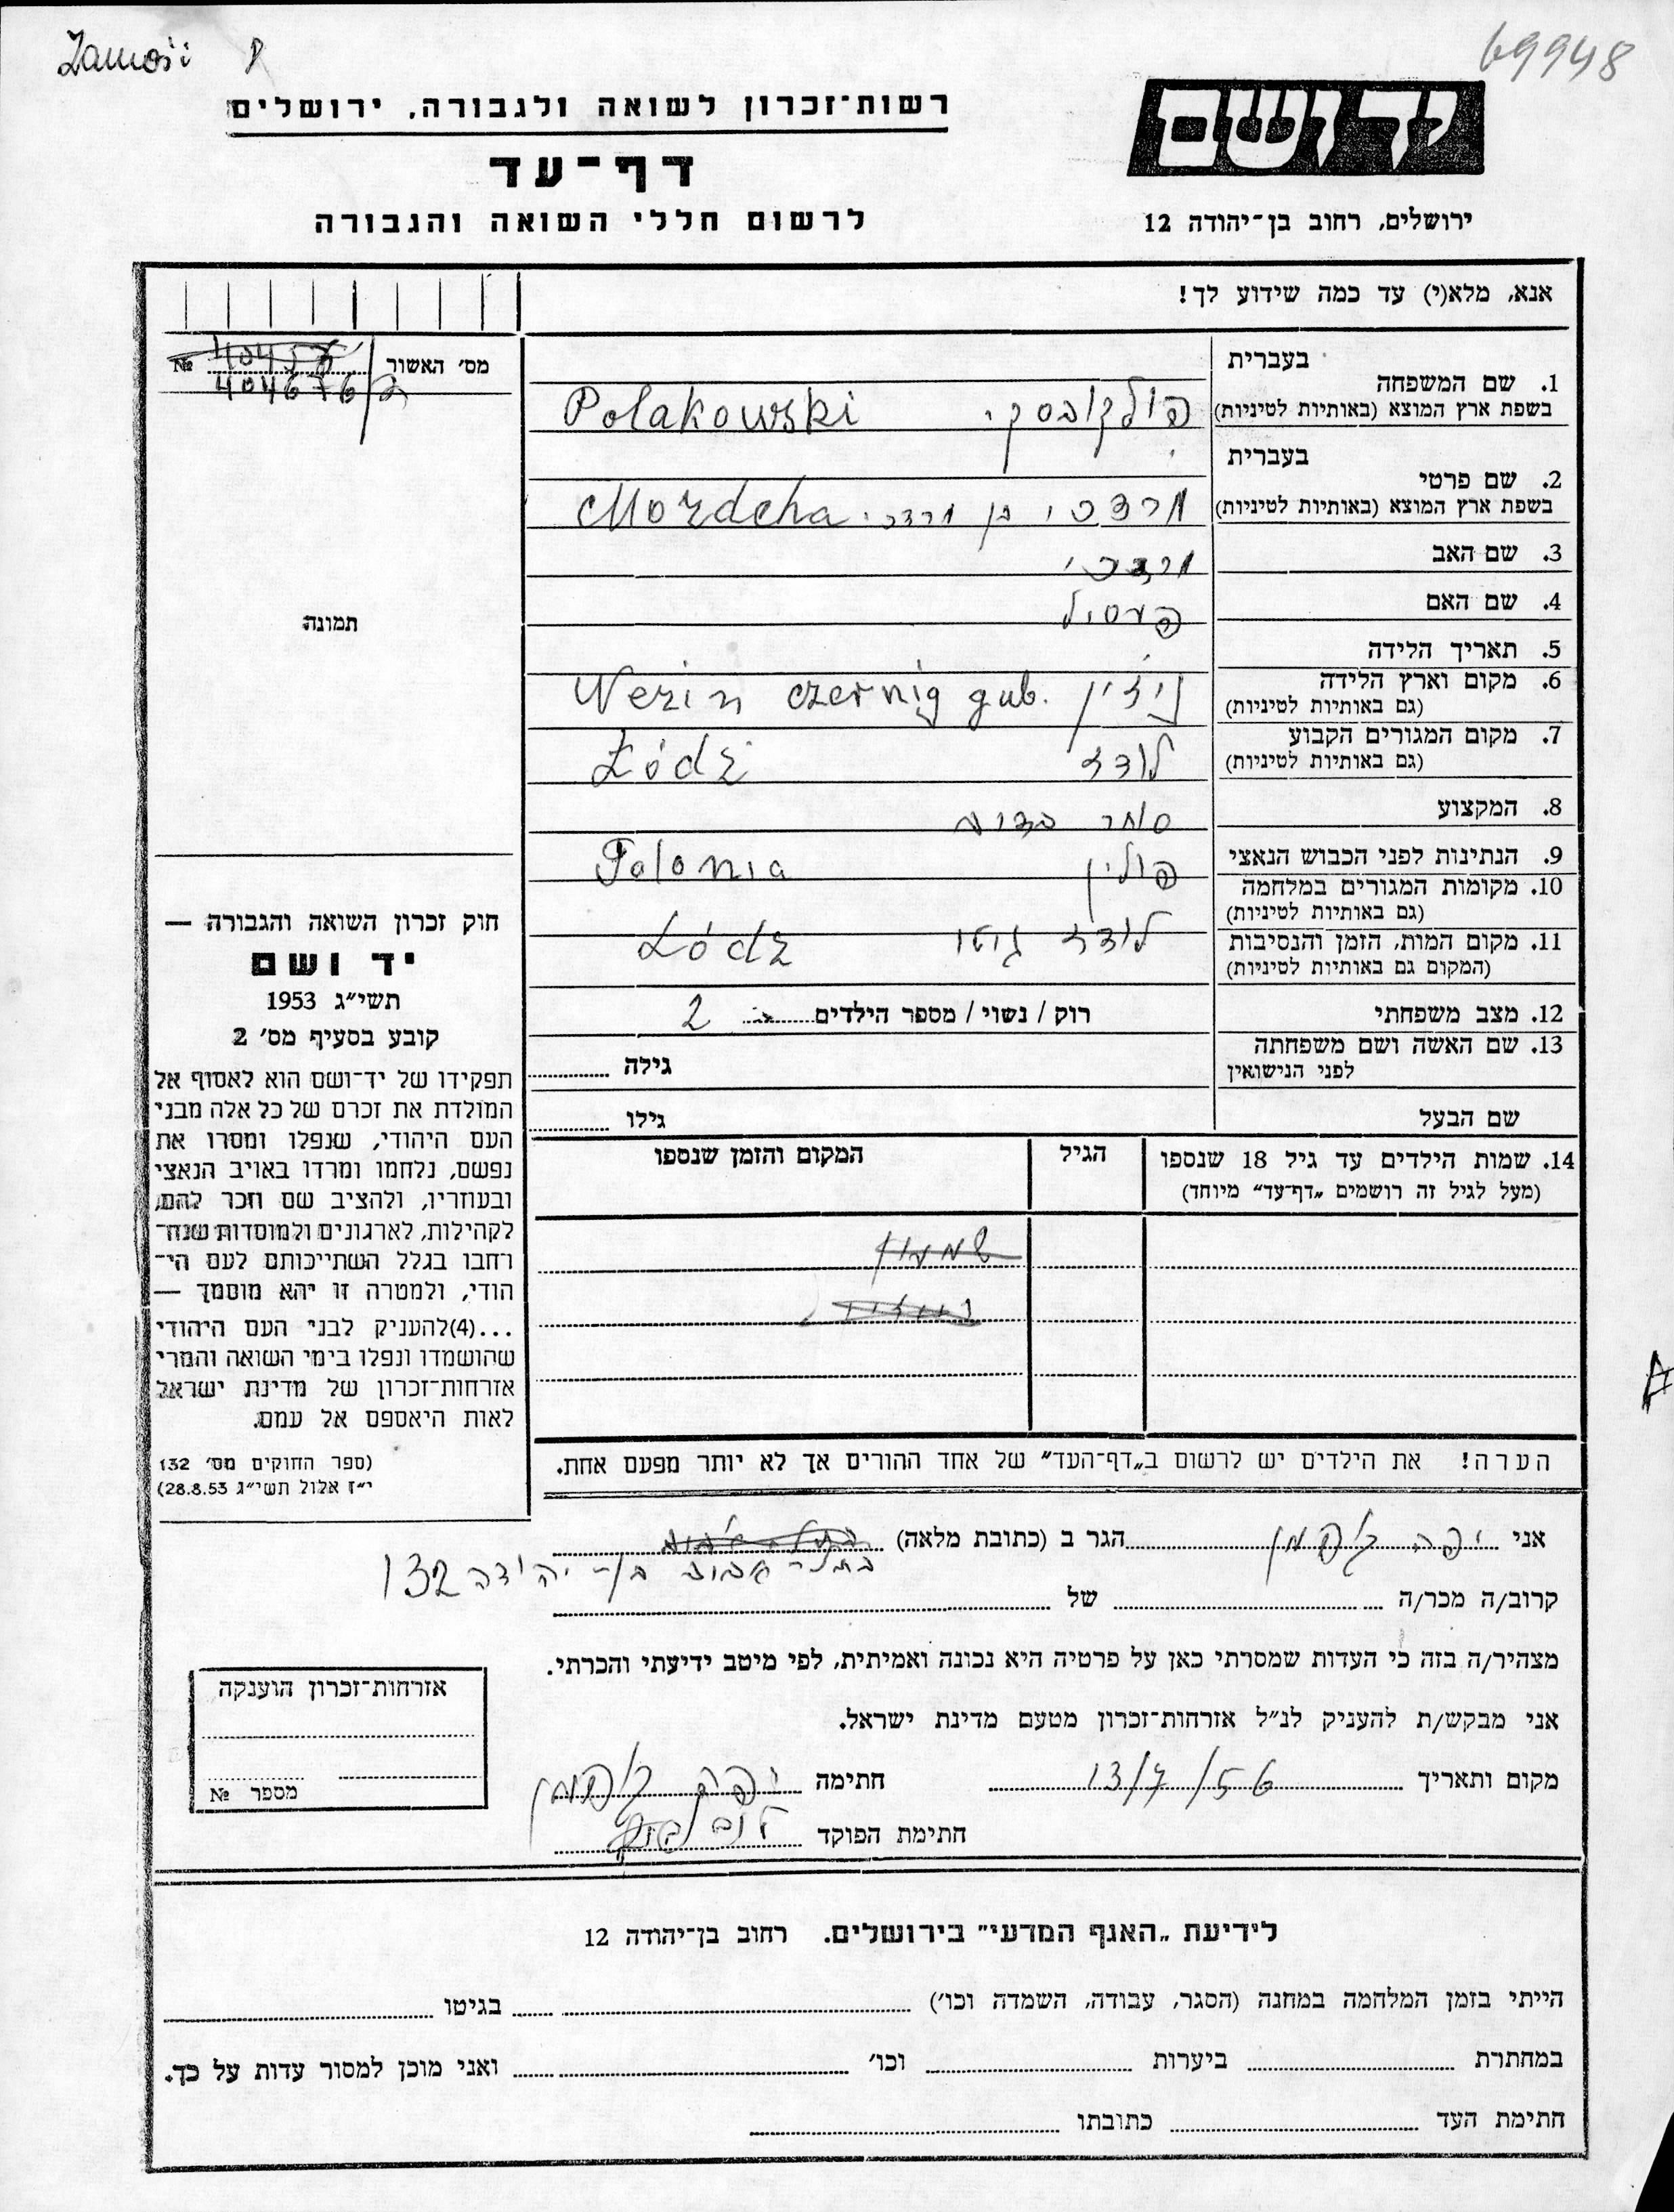 69948
Zamość P
יד ושם
ירושלים, רחוב בן־יהודה 12
רשות־זכרון לשואה ולגבורה, ירושלים
דף־עד
לרשום חללי השואה והגבורה
אנא, מלא(י) עד כמה שידוע לך!
מס׳ האשור №
404676
תמונה
1. שם המשפחה בעברית
בשפת ארץ המוצא (באותיות לטיניות)
פולקובסקי Polakowski
2. שם פרטי בעברית
בשפת ארץ המוצא (באותיות לטיניות)
מרדכי בן מרדכי Mordcha
3. שם האב
מרדכי
4. שם האם
5. תאריך הלידה
6. מקום וארץ הלידה
(גם באותיות לטיניות)
ניזין Nezin czernig gub.
7. מקום המגורים הקבוע
(גם באותיות לטיניות)
לודז Łódż
8. המקצוע
סוחר
9. הנתינות לפני הכבוש הנאצי
פולין Polonia
10. מקומות המגורים במלחמה
(גם באותיות לטיניות)
11. מקום המות, הזמן והנסיבות
(המקום גם באותיות לטיניות)
לודז גיטו Łódz
12. מצב משפחתי
רוק / נשוי / מספר הילדים 2
13. שם האשה ושם משפחתה
לפני הנישואין
גילה
שם הבעל
גילו
14. שמות הילדים עד גיל 18 שנספו
(מעל לגיל זה רושמים „דף־עד״ מיוחד)
הגיל
המקום והזמן שנספו
שמעון
הערה! את הילדים יש לרשום ב„דף־העד״ של אחד ההורים אך לא יותר מפעם אחת.
חוק זכרון השואה והגבורה —
יד ושם
תשי״ג 1953
קובע בסעיף מס׳ 2
תפקידו של יד־ושם הוא לאסוף אל
המולדת את זכרם של כל אלה מבני
העם היהודי, שנפלו ומסרו את
נפשם, נלחמו ומרדו באויב הנאצי
ובעוזריו, ולהציב שם וזכר להם,
לקהילות, לארגונים ולמוסדות שנח־
רחבו בגלל השתייכותם לעם הי־
הודי, ולמטרה זו יהא מוסמך —
...(4)להעניק לבני העם היהודי
שהושמדו ונפלו בימי השואה והמרי
אזרחות־זכרון של מדינת ישראל
לאות היאספם אל עמם.
(ספר החוקים מס׳ 132
י״ז אלול תשי״ג 28.8.53)
אני יפה גפמן הגר ב (כתובת מלאה)
בן־יהודה 132
קרוב/ה מכר/ה של
מצהיר/ה בזה כי העדות שמסרתי כאן על פרטיה היא נכונה ואמיתית, לפי מיטב ידיעתי והכרתי.
אני מבקש/ת להעניק לנ״ל אזרחות־זכרון מטעם מדינת ישראל.
מקום ותאריך 13/7/56 חתימה יפה גפמן
חתימת הפוקד
אזרחות־זכרון הוענקה
מספר №
לידיעת „האגף המדעי״ בירושלים. רחוב בן־יהודה 12
הייתי בזמן המלחמה במחנה (הסגר, עבודה, השמדה וכו׳) בגיטו
במחתרת ביערות וכו׳ ואני מוכן למסור עדות על כך.
חתימת העד כתובתו